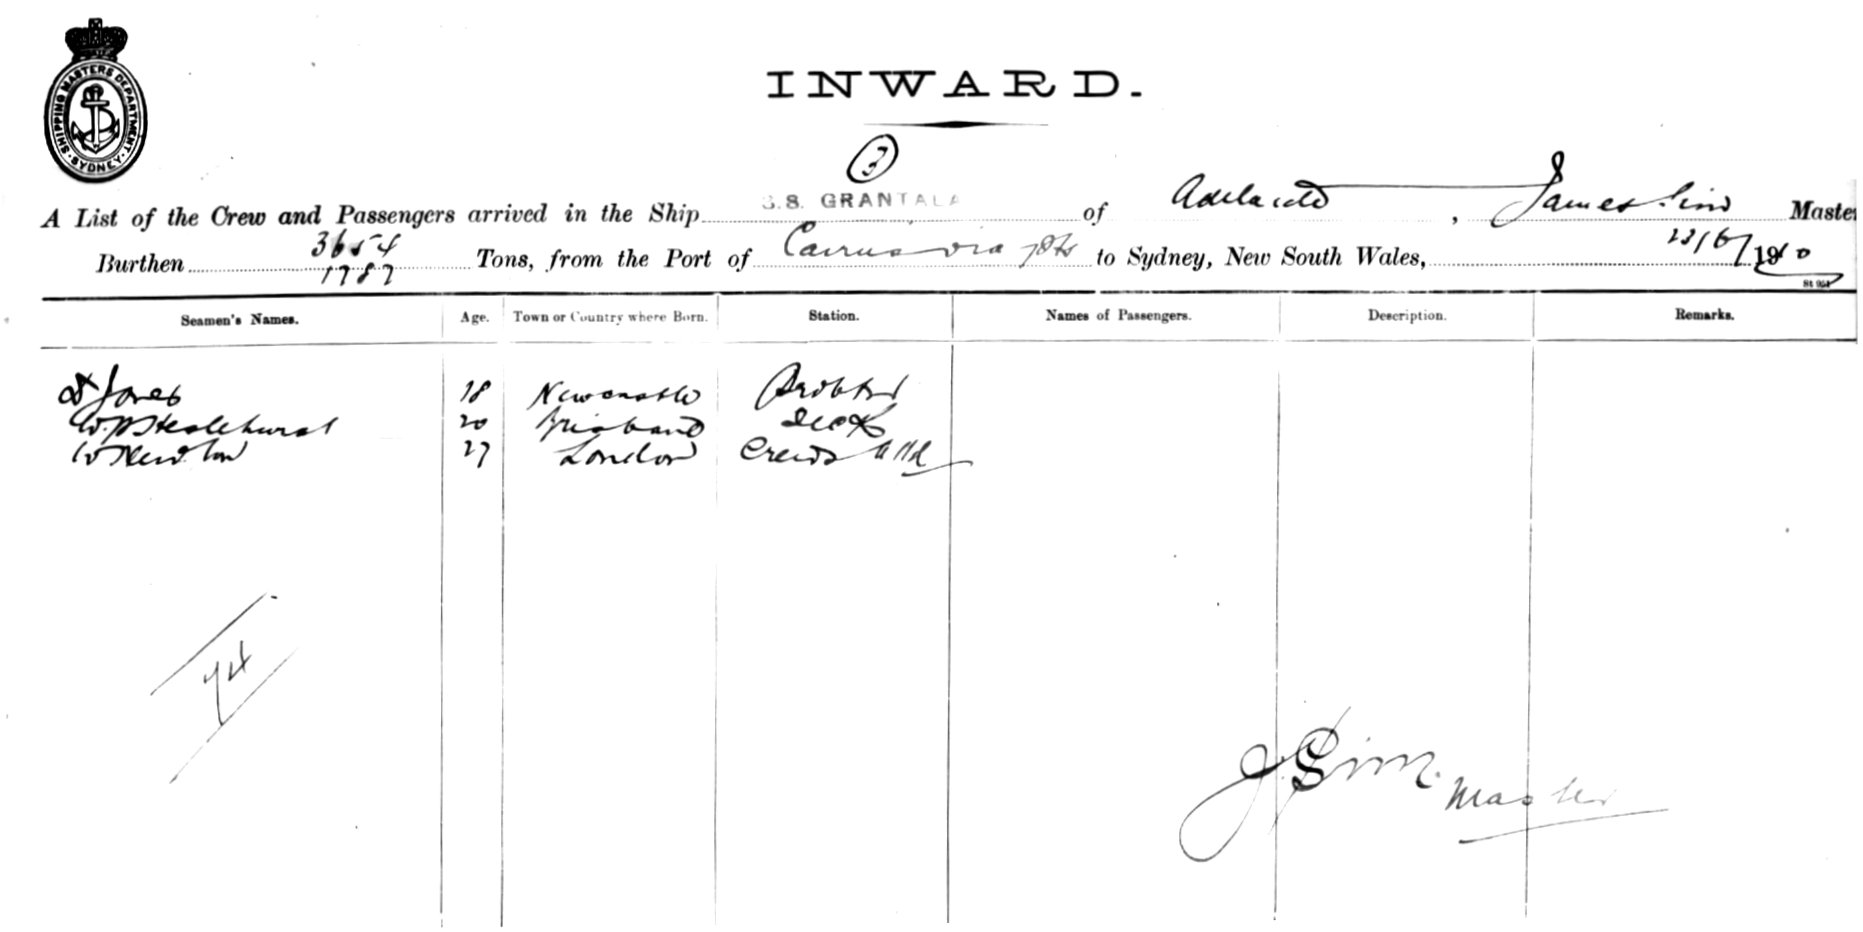 SHIPPING MASTERS DEPARTMENT. SYDNEY
INWARD.
3
A List of the Crew and Passengers arrived in the Ship S.S. GRANTALA of Adelaide, James Sim Master
Burthen 3654 Tons, from the Port of Cairns via Pts to Sydney, New South Wales, 23/6/1910
1787
St 951
Seamen's Names. Age. Town or Country where Born. Station. Names of Passengers. Description. Remarks.
D Jones 18 Newcastle
W. Hazlehurst 20 Brisbane Deck
W Newton 27 London Crews Attd
74
J. Sim. Master